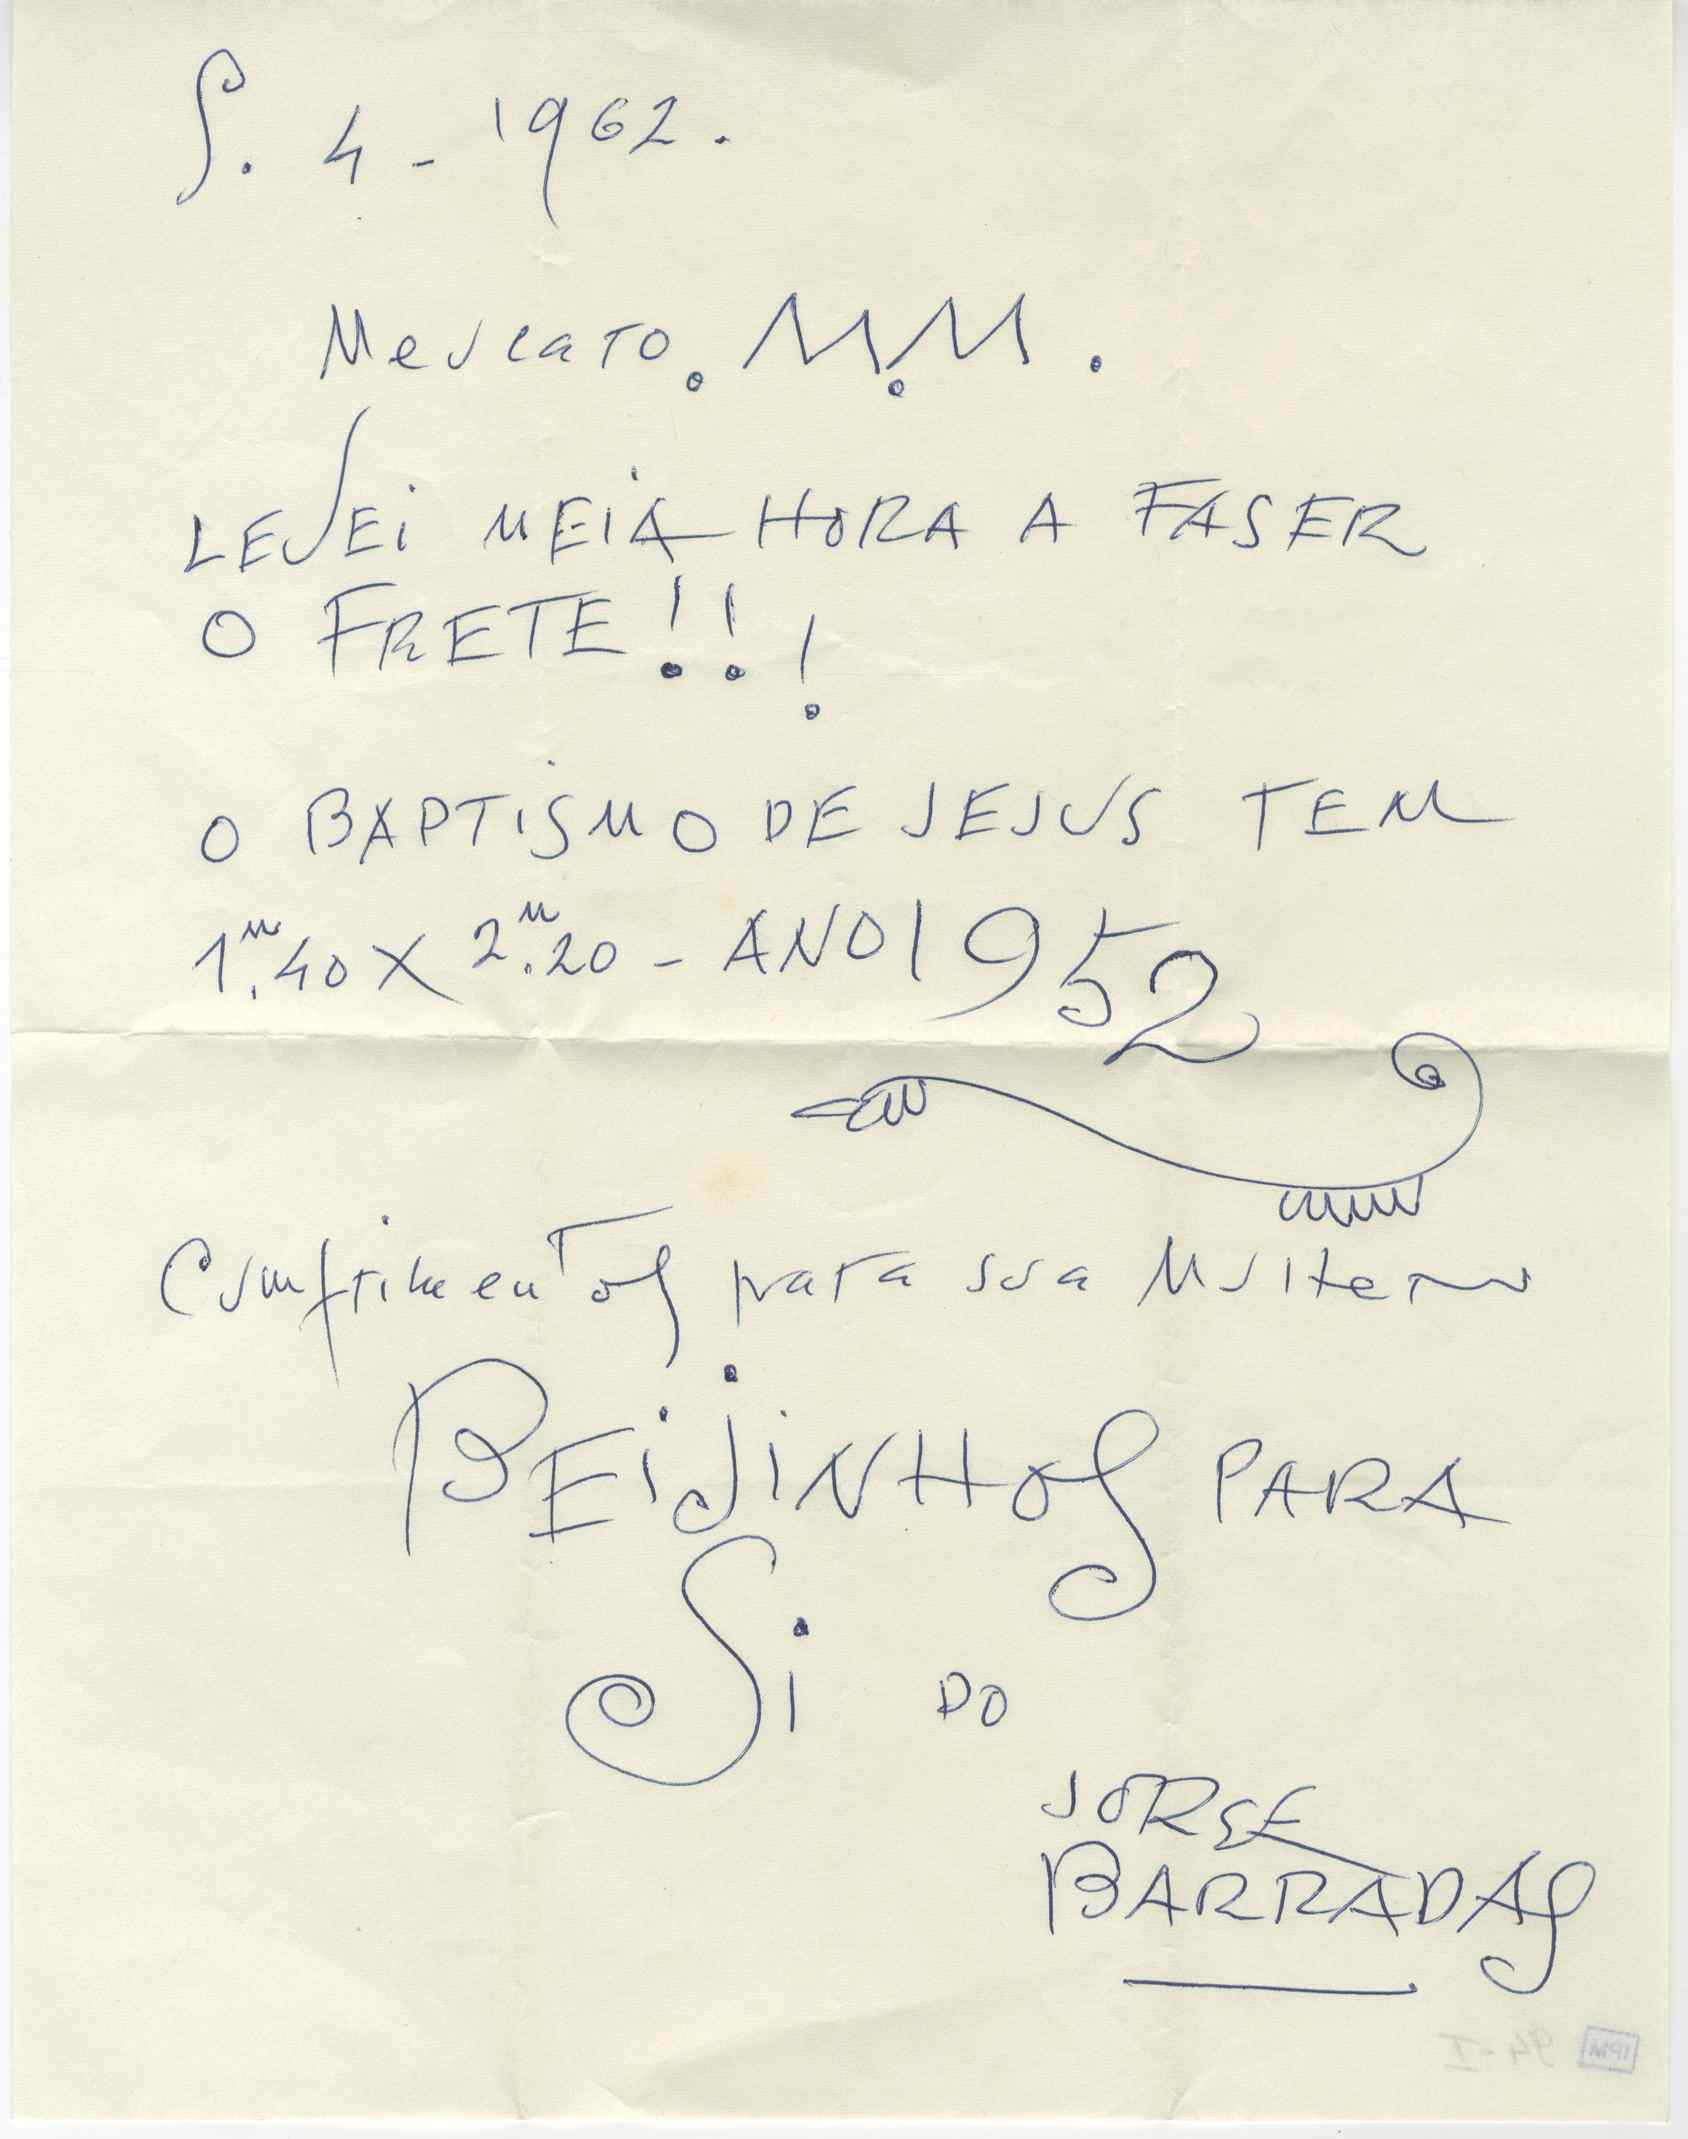 S. 4 - 1962.
Meu caro. M.M.
LEVEi MEiA HORA A FASER
O FRETE!!!
O BAPTiSMO DE JESUS TEM
1.ᵐ40 X 2.ᵐ20 - ANO 1952
Cumprimentos para sua Mulher
BEiJiNHOS PARA
Si DO
JORGE
BARRADAS